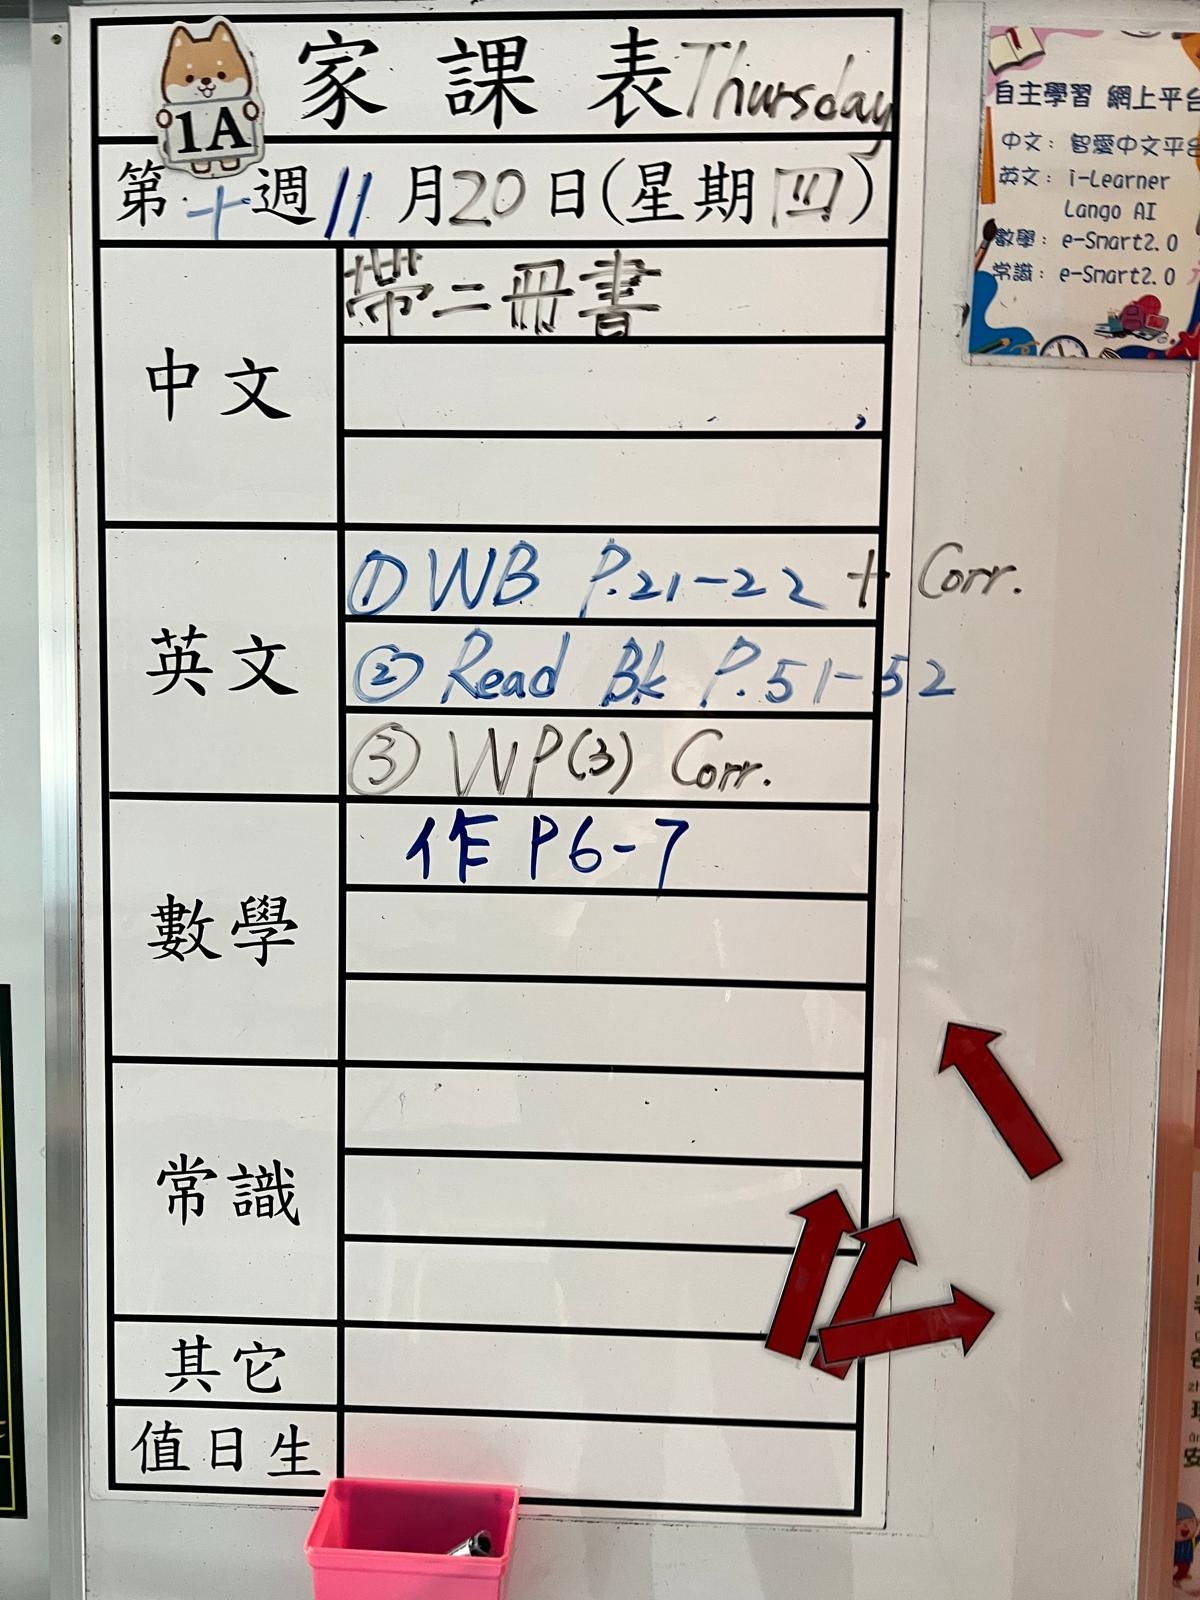 1A
家課表 Thursday
第十週 11月20日(星期四)
中文
帶二冊書
英文
① WB P.21-22 + Corr.
② Read Bk P.51-52
③ WP(3) Corr.
數學
作 P6-7
常識
其它
值日生
自主學習 網上平台
中文：智愛中文平台
英文：i-Learner
Lango AI
數學：e-Smart2.0
常識：e-Smart2.0